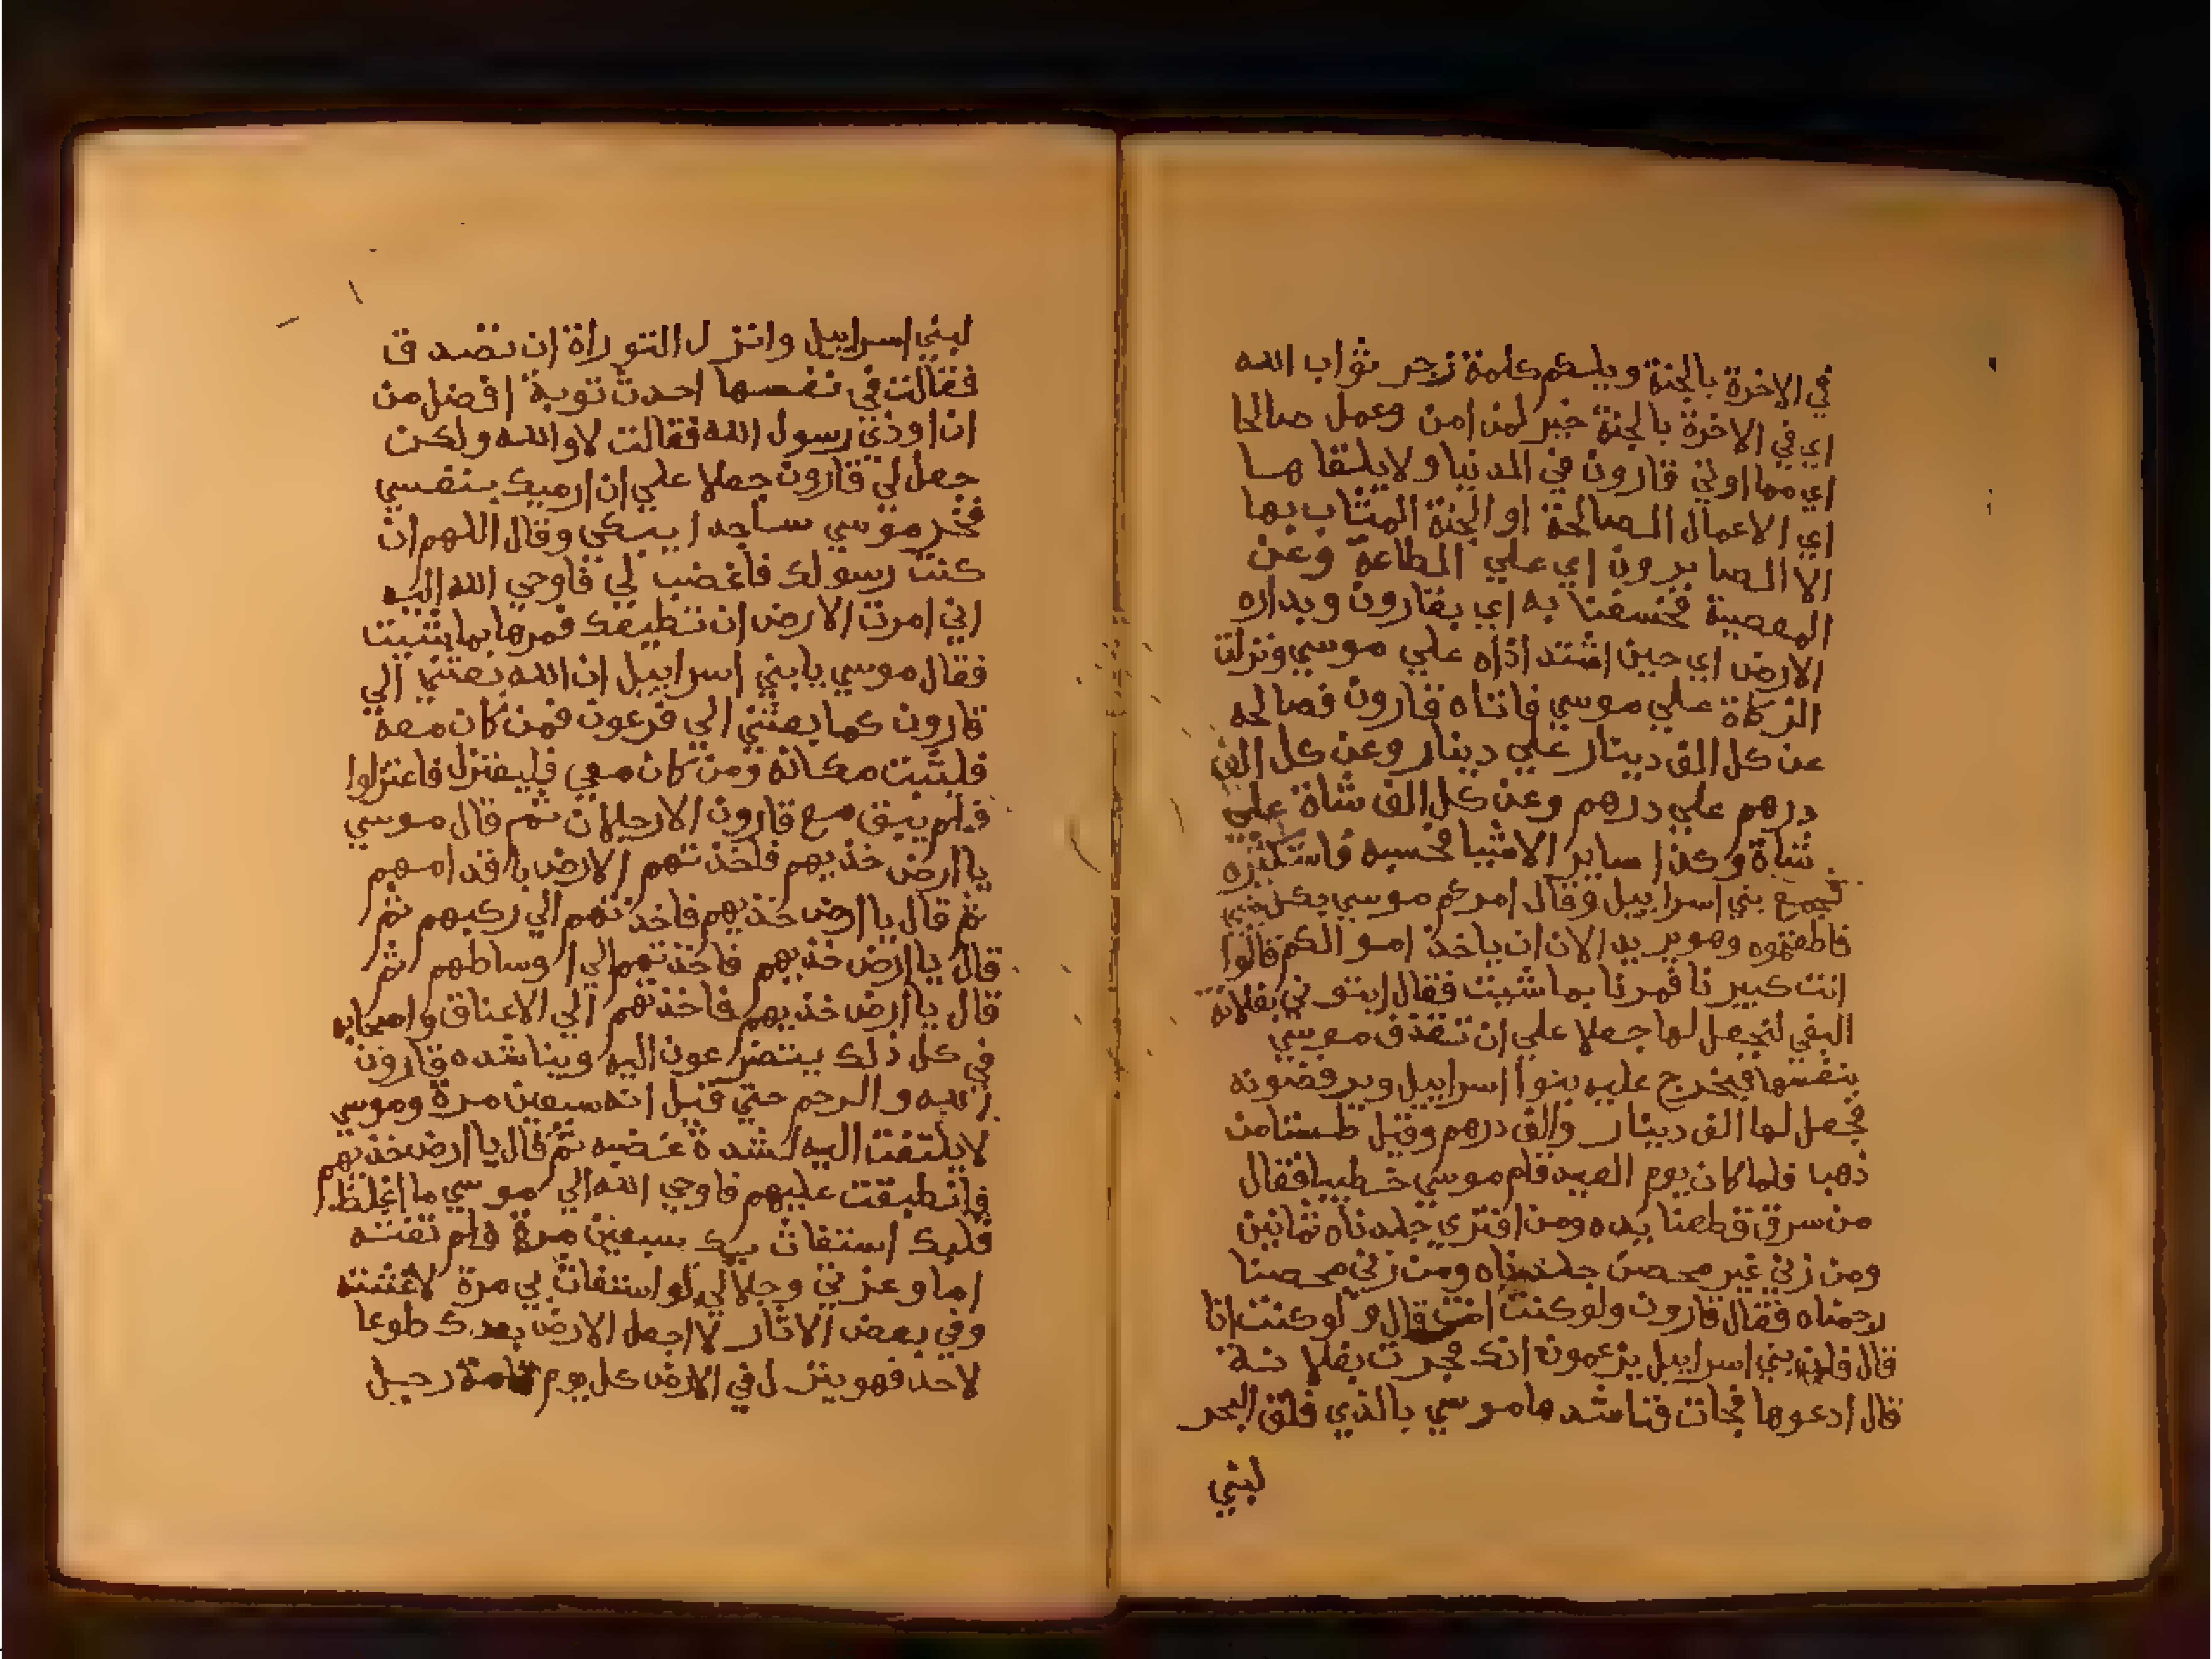 في الاخرة بالجنة ويلكم كلمة زجر ثواب الله
اي في الاخرة بالجنة خير لمن امن وعمل صالحا
اي مما اوتي قارون في الدنيا ولا يلقاها
اي الاعمال الصالحة او الجنة المثاب بها
الا الصابرون اي علي الطاعة وعن
المعصية فخسفنا به اي بقارون وبداره
الارض اي حين اشتد اذاه علي موسي ونزلت
الزكاة علي موسي فاتاه قارون فصالحه
عن كل الف دينار علي دينار وعن كل الف
درهم علي درهم وعن كل الف شاة علي
شاة وكذا ساير الاشيا فحسبه فاستكثره
فجمع بني اسراييل وقال امركم موسي بكل شي
فاطعتموه وهو يريد الان ان ياخذ اموالكم قالوا
انت كبيرنا فمرنا بما شيت فقال ايتوني بفلانة
البغي لنجعل لها جعلا علي ان تقذف موسي
بنفسها فيخرج عليه بنوا اسراييل ويرفضونه
فجعل لها الف دينار والف درهم وقيل طستا من
ذهبا فلما كان يوم العيد قام موسي خطيبا فقال
من سرق قطعنا يده ومن افتري جلدناه ثمانين
ومن زني غير محصن جلدناه ومن زني محصنا
رجمناه فقال قارون ولو كنت انت قال ولو كنت انا
قال فان بني اسراييل يزعمون انك فجرت بفلانة
قال ادعوها فجات فناشدها موسي بالذي فلق البحر
لبني
لبني اسراييل وانزل التوراة ان تصدق
فقالت في نفسها احدث توبة افضل من
ان اوذي رسول الله فقالت لا والله ولكن
جعل لي قارون جعلا علي ان ارميك بنفسي
فخر موسي ساجدا يبكي وقال اللهم ان
كنت رسولك فاغضب لي فاوحي الله اليه
اني امرت الارض ان تطيعك فمرها بما شيت
فقال موسي يا بني اسراييل ان الله بعثني الي
قارون كما بعثني الي فرعون فمن كان معه
فليثبت مكانه ومن كان معي فليعتزل فاعتزلوا
فلم يبق مع قارون الا رجلان ثم قال موسي
يا ارض خذيهم فاخذتهم الارض باقدامهم
ثم قال يا ارض خذيهم فاخذتهم الي ركبهم ثم
قال يا ارض خذيهم فاخذتهم الي اوساطهم ثم
قال يا ارض خذيهم فاخذتهم الي الاعناق واصحابه
في كل ذلك يتضرعون اليه ويناشده قارون
الله والرحم حتي قيل انه سبعين مرة وموسي
لا يلتفت اليه لشدة غضبه ثم قال يا ارض خذيهم
فانطبقت عليهم فاوحي الله الي موسي ما اغلظ
قلبك استغاث بك سبعين مرة ولم تغثه
اما وعزتي وجلالي لو استغاث بي مرة لاغثته
وفي بعض الاثار لا اجعل الارض بعدك طوعا
لاحد فهو ينزل في الارض كل يوم قامة رجل